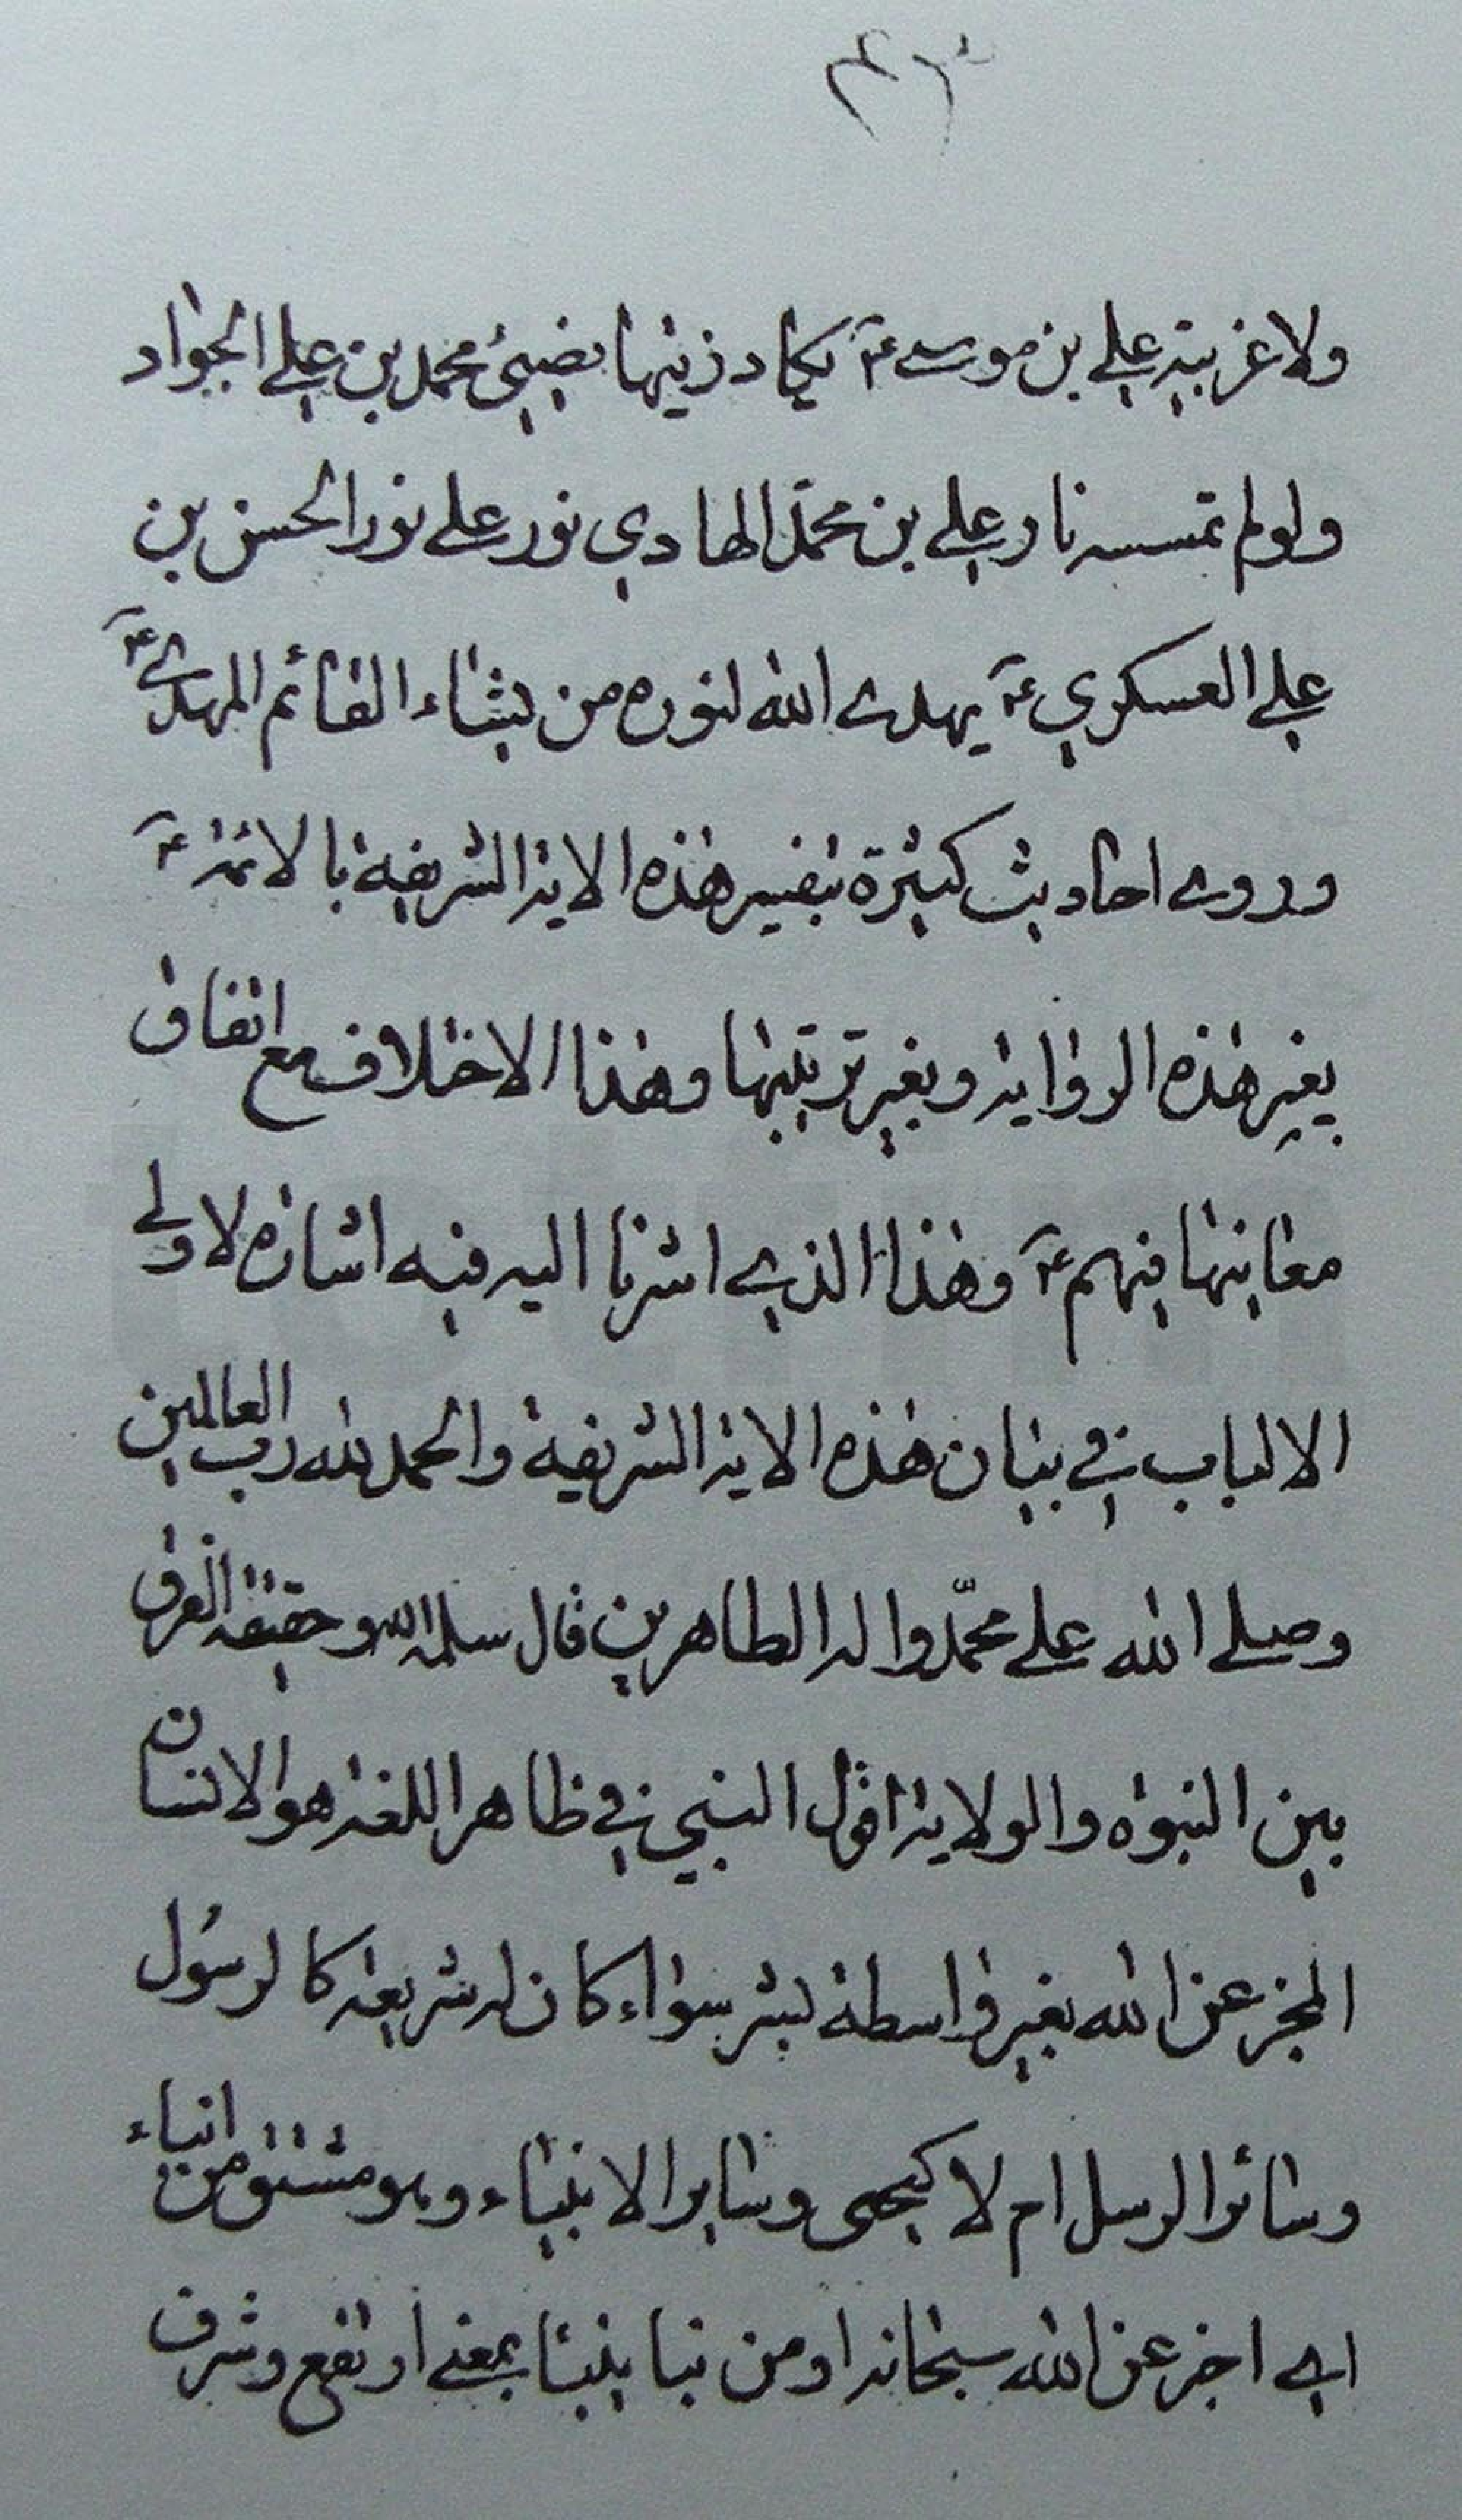 ولا غربية علي بن موسى ع يكاد زيتها يضيئ محمد بن علي الجواد
ولو لم تمسسه نار علي بن محمد الهادي نور على نور الحسن بن
علي العسكري ع يهدى الله لنوره من يشاء القائم المهدي ع
وروى احاديث كثيرة بتفسير هذه الاية الشريفة بالائمة ع
بغير هذه الرواية وبغير ترتيبها وهذا الاختلاف مع اتفاق
معانيها فيهم ع وهذا الذي اشرنا اليه فيه اشارة لاولي
الالباب في بيان هذه الاية الشريفة والحمد لله رب العالمين
وصلى الله على محمّد واله الطاهرين قال سلمه الله وحقيقة الفرق
بين النبوة والولاية اقول النبي في ظاهر اللغة هو الانسان
المخبر عن الله بغير واسطة بشر سواء كان له شريعة كالرسول
وسائر الرسل ام لا كيحيى وساير الانبياء وهو مشتق من انباء
اي اخبر عن الله سبحانه او من نبا ينبئا بمعنى ارتفع وشرف